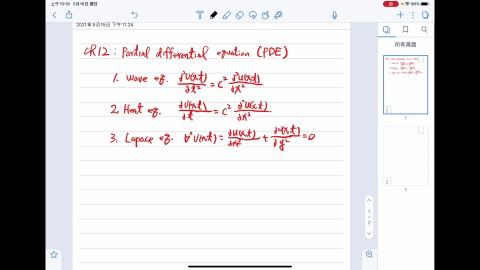 上午10:19 5月16日 週日
90%
2021年5月15日 下午11:24
所有頁面
CH12: Partial differential equation (PDE)
1. Wave eq. ∂²U(x,t)/∂t² = C² ∂²U(x,t)/∂x²
2. Heat eq. ∂U(x,t)/∂t = C² ∂²U(x,t)/∂x²
3. Lapace eq. ∇²U(x,t) = ∂U(x,t)/∂x² + ∂U(x,t)/∂y² = 0
1
2
1/2